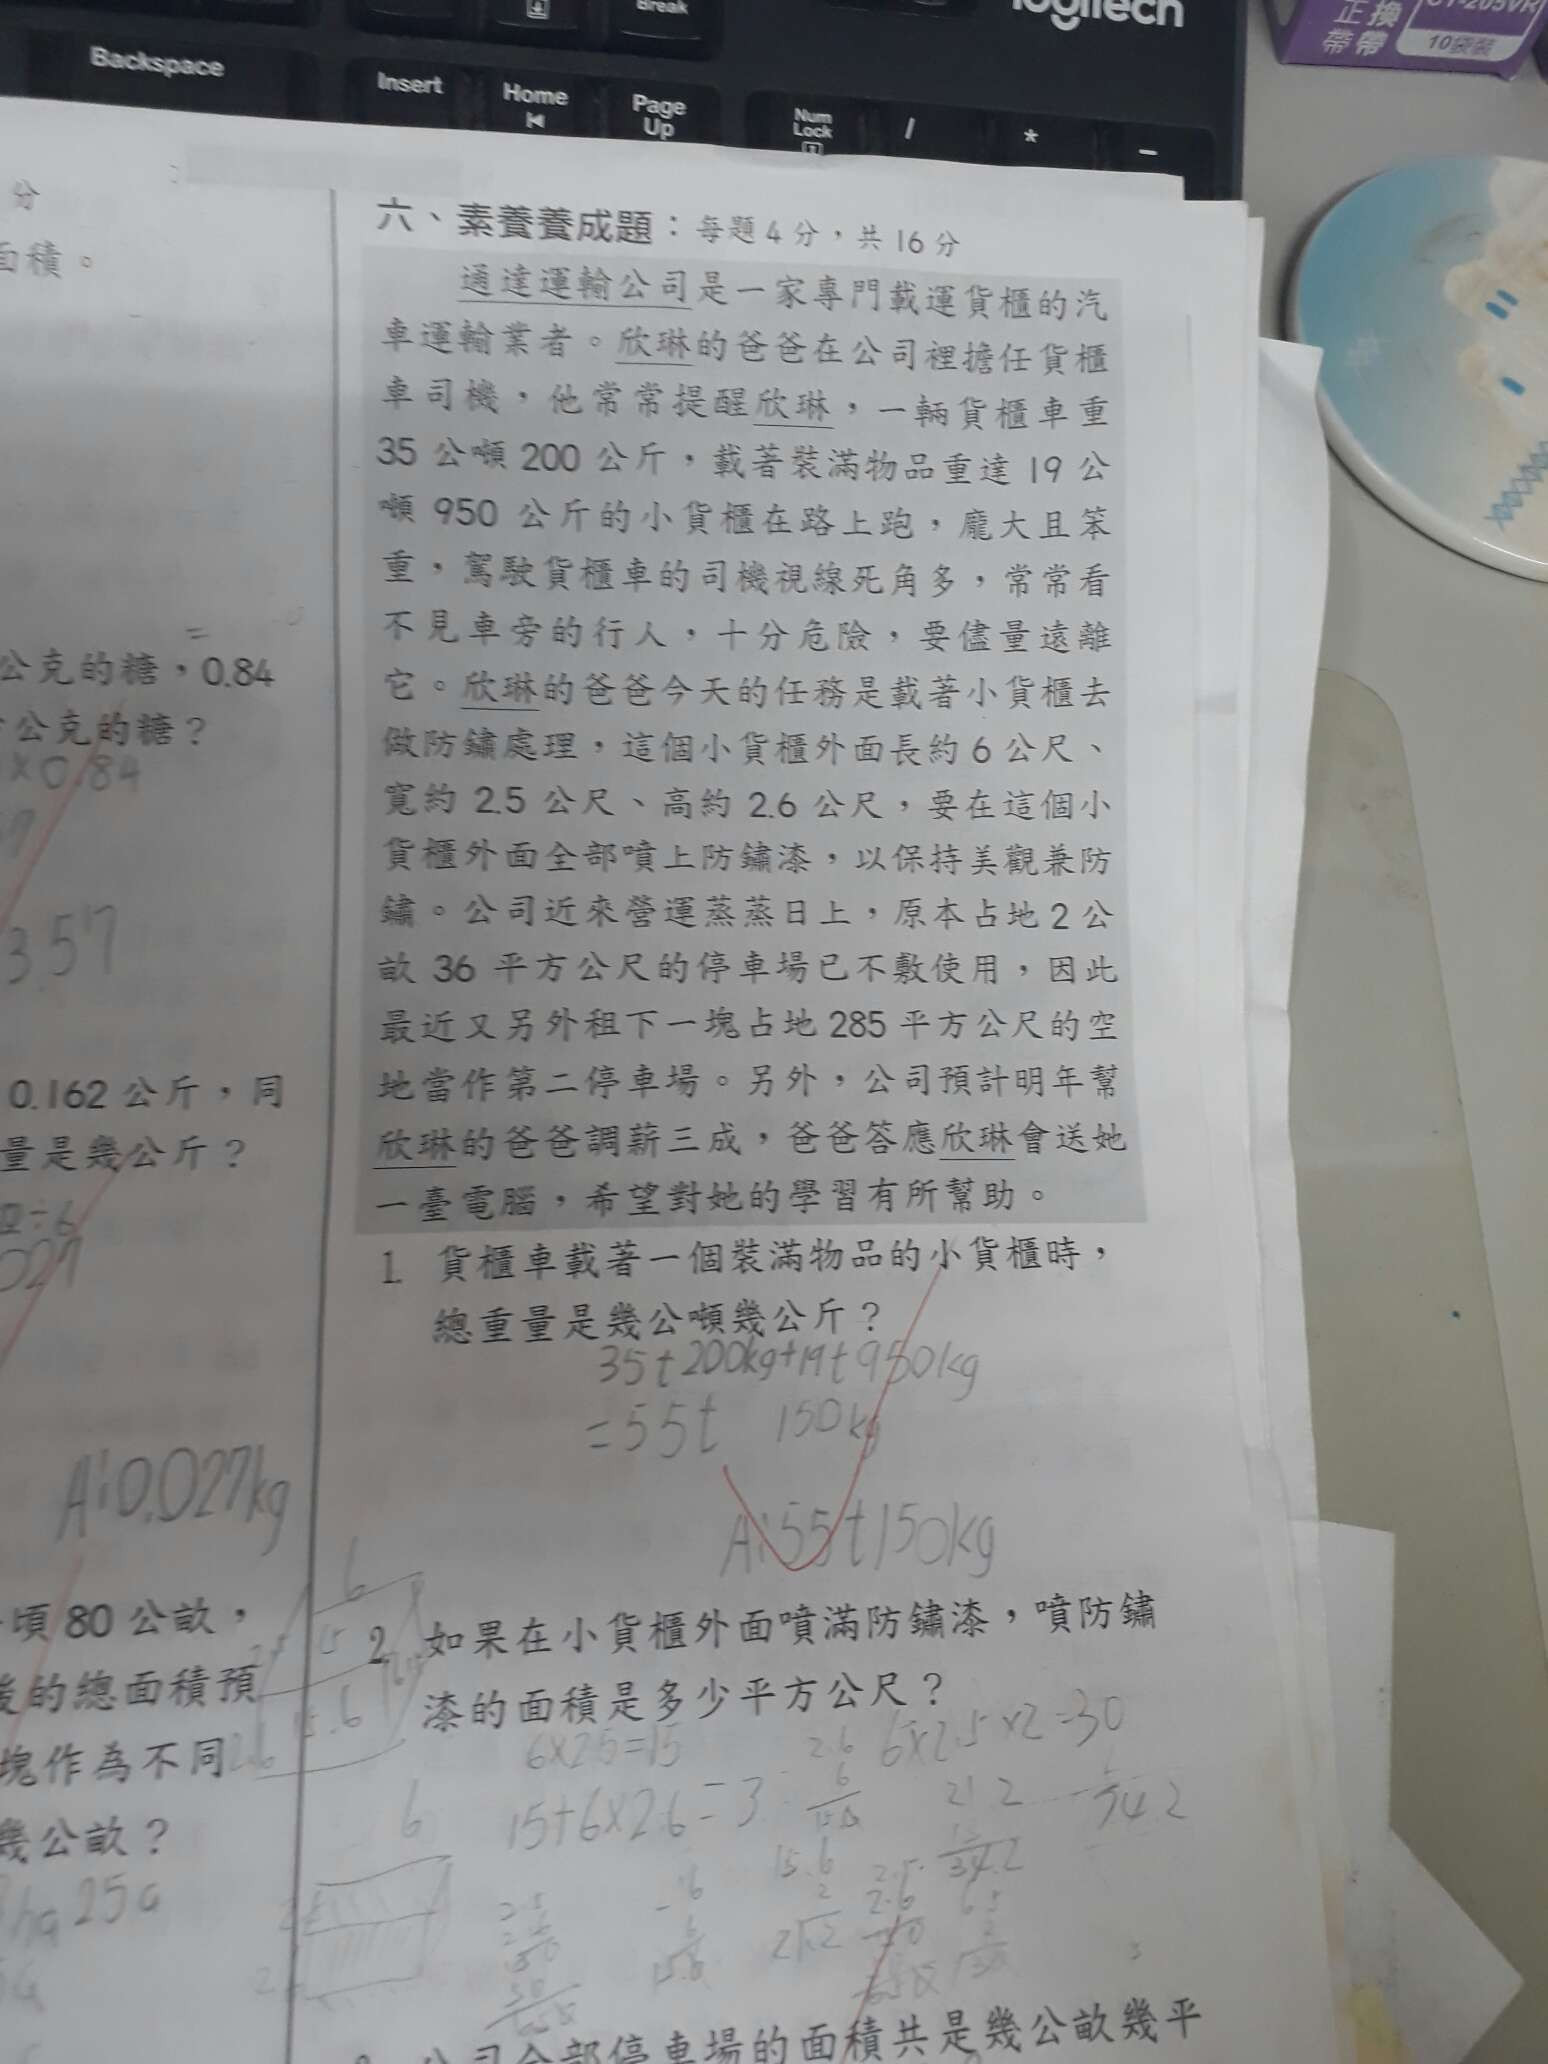 Break
logitech
正換
帶帶
CT-205VR
10袋裝
Backspace
Insert
Home
Page
Up
Num
Lock
/
*
分
面積。
公克的糖，0.84
公克的糖？
×0.84
3.57
0.162公斤，同
量是幾公斤？
÷6
027
A:0.027kg
頃80公畝，
後的總面積預
塊作為不同
幾公畝？
ha 25a
六、素養養成題：每題4分，共16分
通達運輸公司是一家專門載運貨櫃的汽
車運輸業者。欣琳的爸爸在公司裡擔任貨櫃
車司機，他常常提醒欣琳，一輛貨櫃車重
35公噸200公斤，載著裝滿物品重達19公
噸950公斤的小貨櫃在路上跑，龐大且笨
重，駕駛貨櫃車的司機視線死角多，常常看
不見車旁的行人，十分危險，要儘量遠離
它。欣琳的爸爸今天的任務是載著小貨櫃去
做防鏽處理，這個小貨櫃外面長約6公尺、
寬約2.5公尺、高約2.6公尺，要在這個小
貨櫃外面全部噴上防鏽漆，以保持美觀兼防
鏽。公司近來營運蒸蒸日上，原本占地2公
畝36平方公尺的停車場已不敷使用，因此
最近又另外租下一塊占地285平方公尺的空
地當作第二停車場。另外，公司預計明年幫
欣琳的爸爸調薪三成，爸爸答應欣琳會送她
一臺電腦，希望對她的學習有所幫助。
1. 貨櫃車載著一個裝滿物品的小貨櫃時，
總重量是幾公噸幾公斤？
35t200kg+19t950kg
=55t 150kg
A:55t150kg
6
2. 如果在小貨櫃外面噴滿防鏽漆，噴防鏽
漆的面積是多少平方公尺？
15.6
2.6
6×2.5=15
6×2.5×2=30
15+6×2.6=3
2.6
6
6
15.6
2
公司全部停車場的面積共是幾公畝幾平